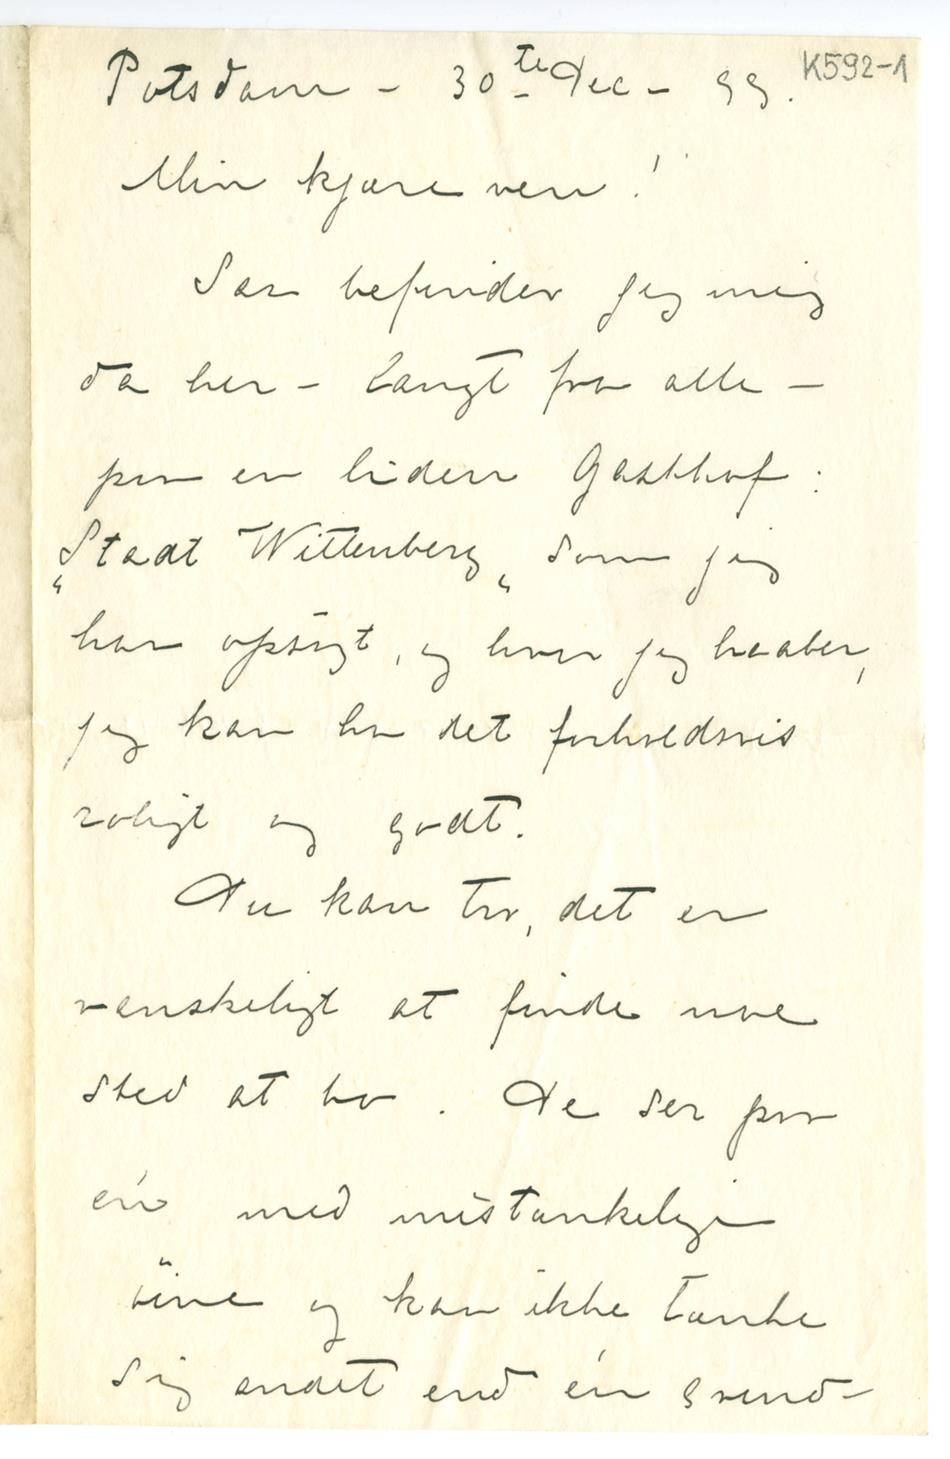 Potsdam – 30te Dec – 99.
K592-1
Min kjære ven!
Saa befinder jeg mig
da her – langt fra alle –
paa en liden Gasthof:
„Stadt Wittenberg„ som jeg
har opsøgt, og hvor jeg haaber,
jeg kan ha det forholdsvis
roligt og godt.
Du kan tro, det er
vanskeligt at finde noe
sted at bo. De ser paa
én med mistænkelige
öine og kan ikke tænke
sig andet end én grund –